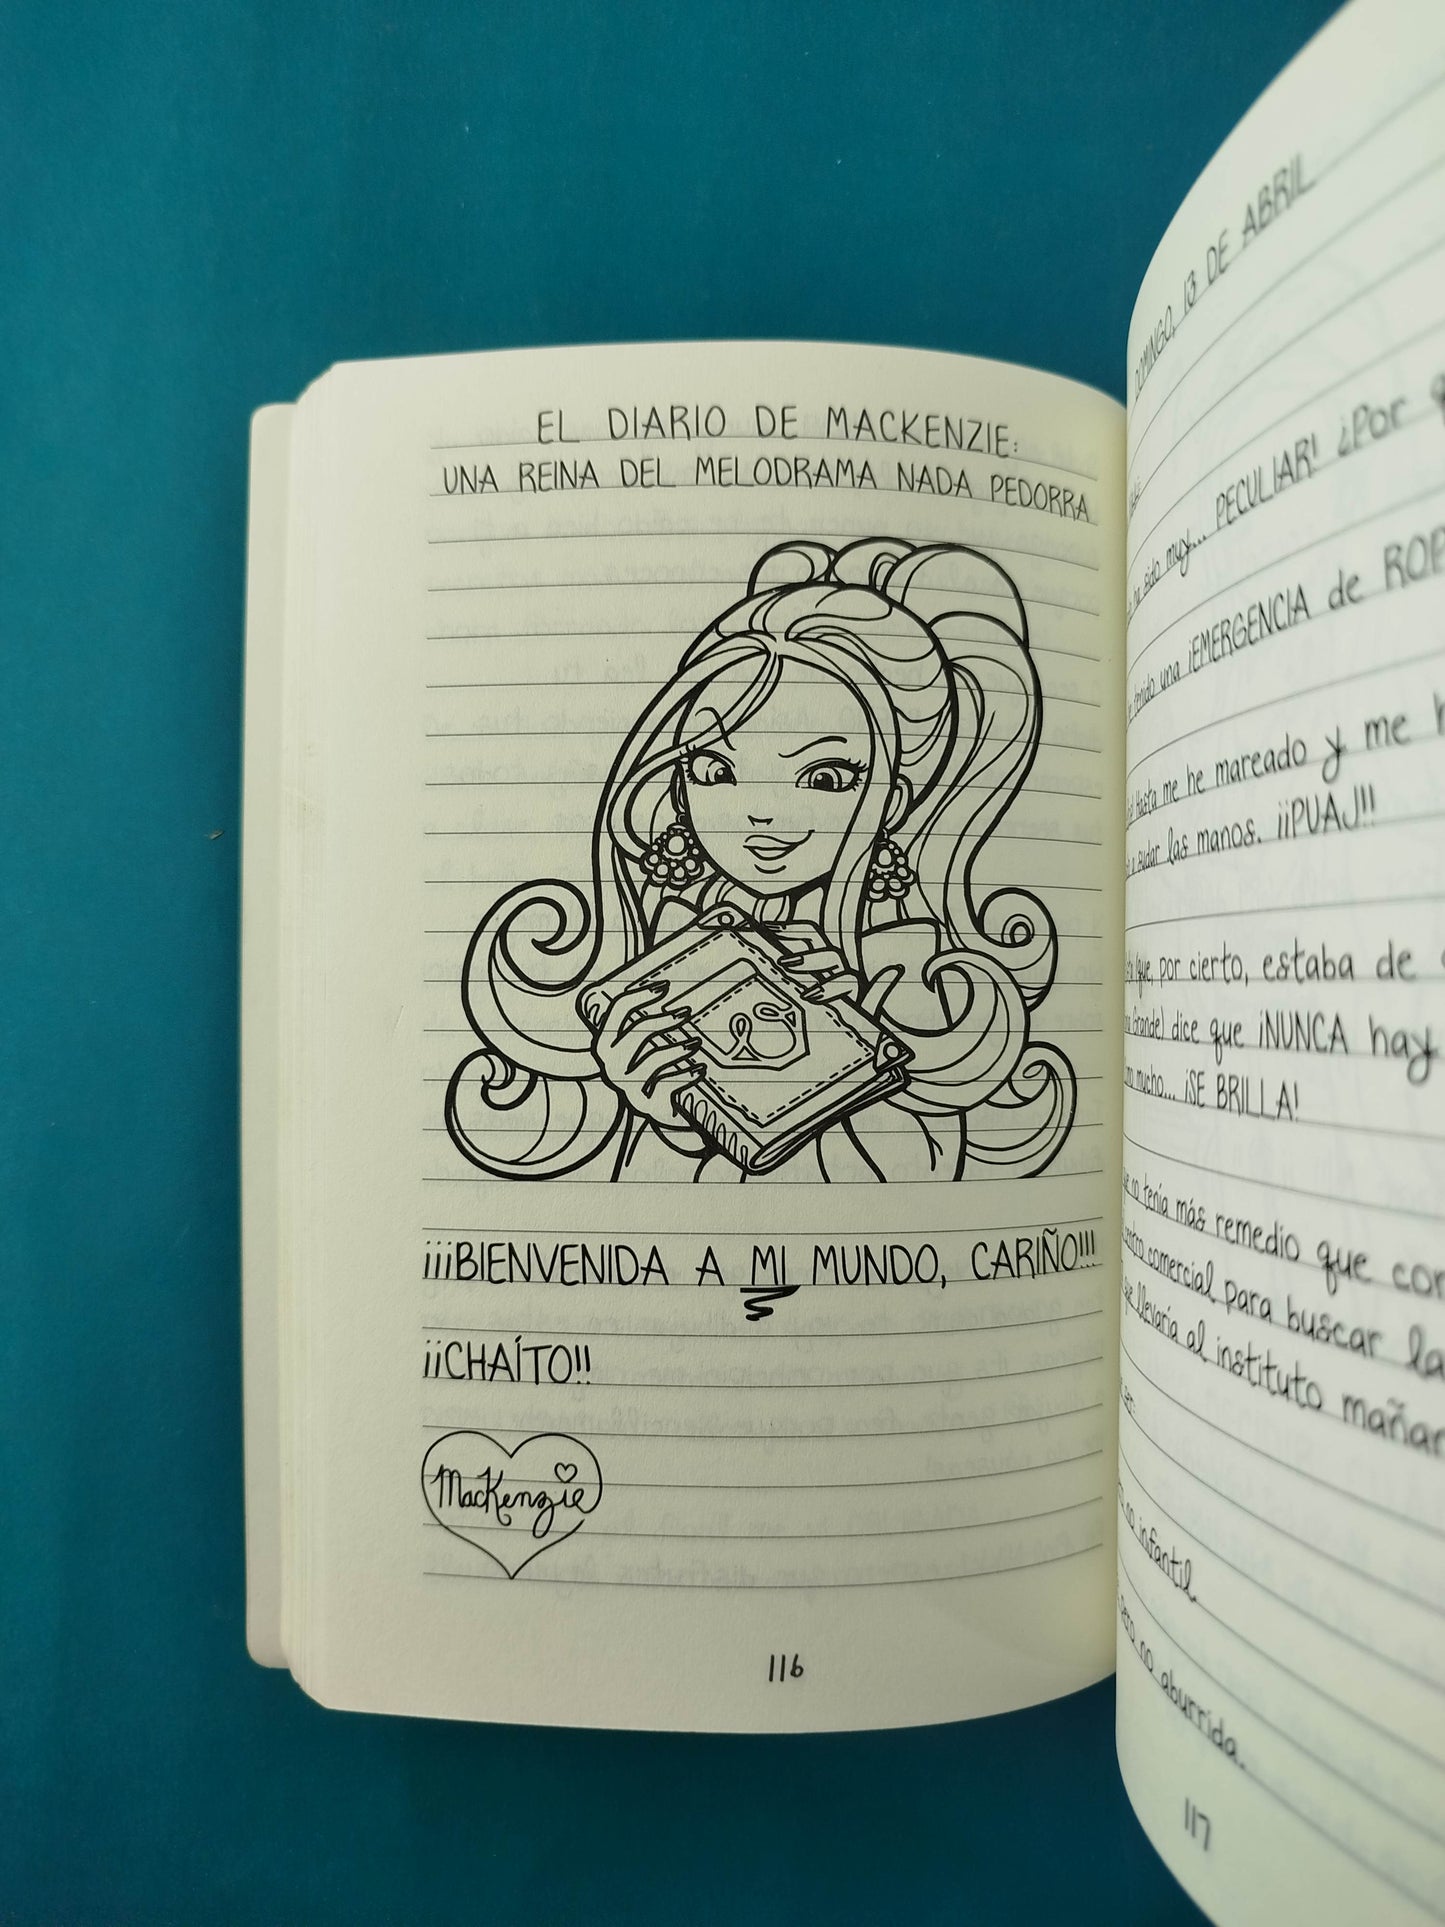 EL DIARIO DE MACKENZIE:
UNA REINA DEL MELODRAMA NADA PEDORRA
¡¡¡BIENVENIDA A MI MUNDO, CARIÑO!!!
¡¡CHAÍTO!!
MacKenzie
116
DOMINGO, 13 DE ABRIL
sido muy... PECULIAR! ¿Por
tenido una ¡EMERGENCIA de
Hasta me he mareado y me
a sudar las manos. ¡¡PUAJ!!
(que, por cierto, estaba de
Grande) dice que ¡NUNCA hay
mucho... ¡SE BRILLA!
que no tenía más remedio que
centro comercial para buscar la
que llevaría al instituto
no infantil.
pero no aburrida.
117